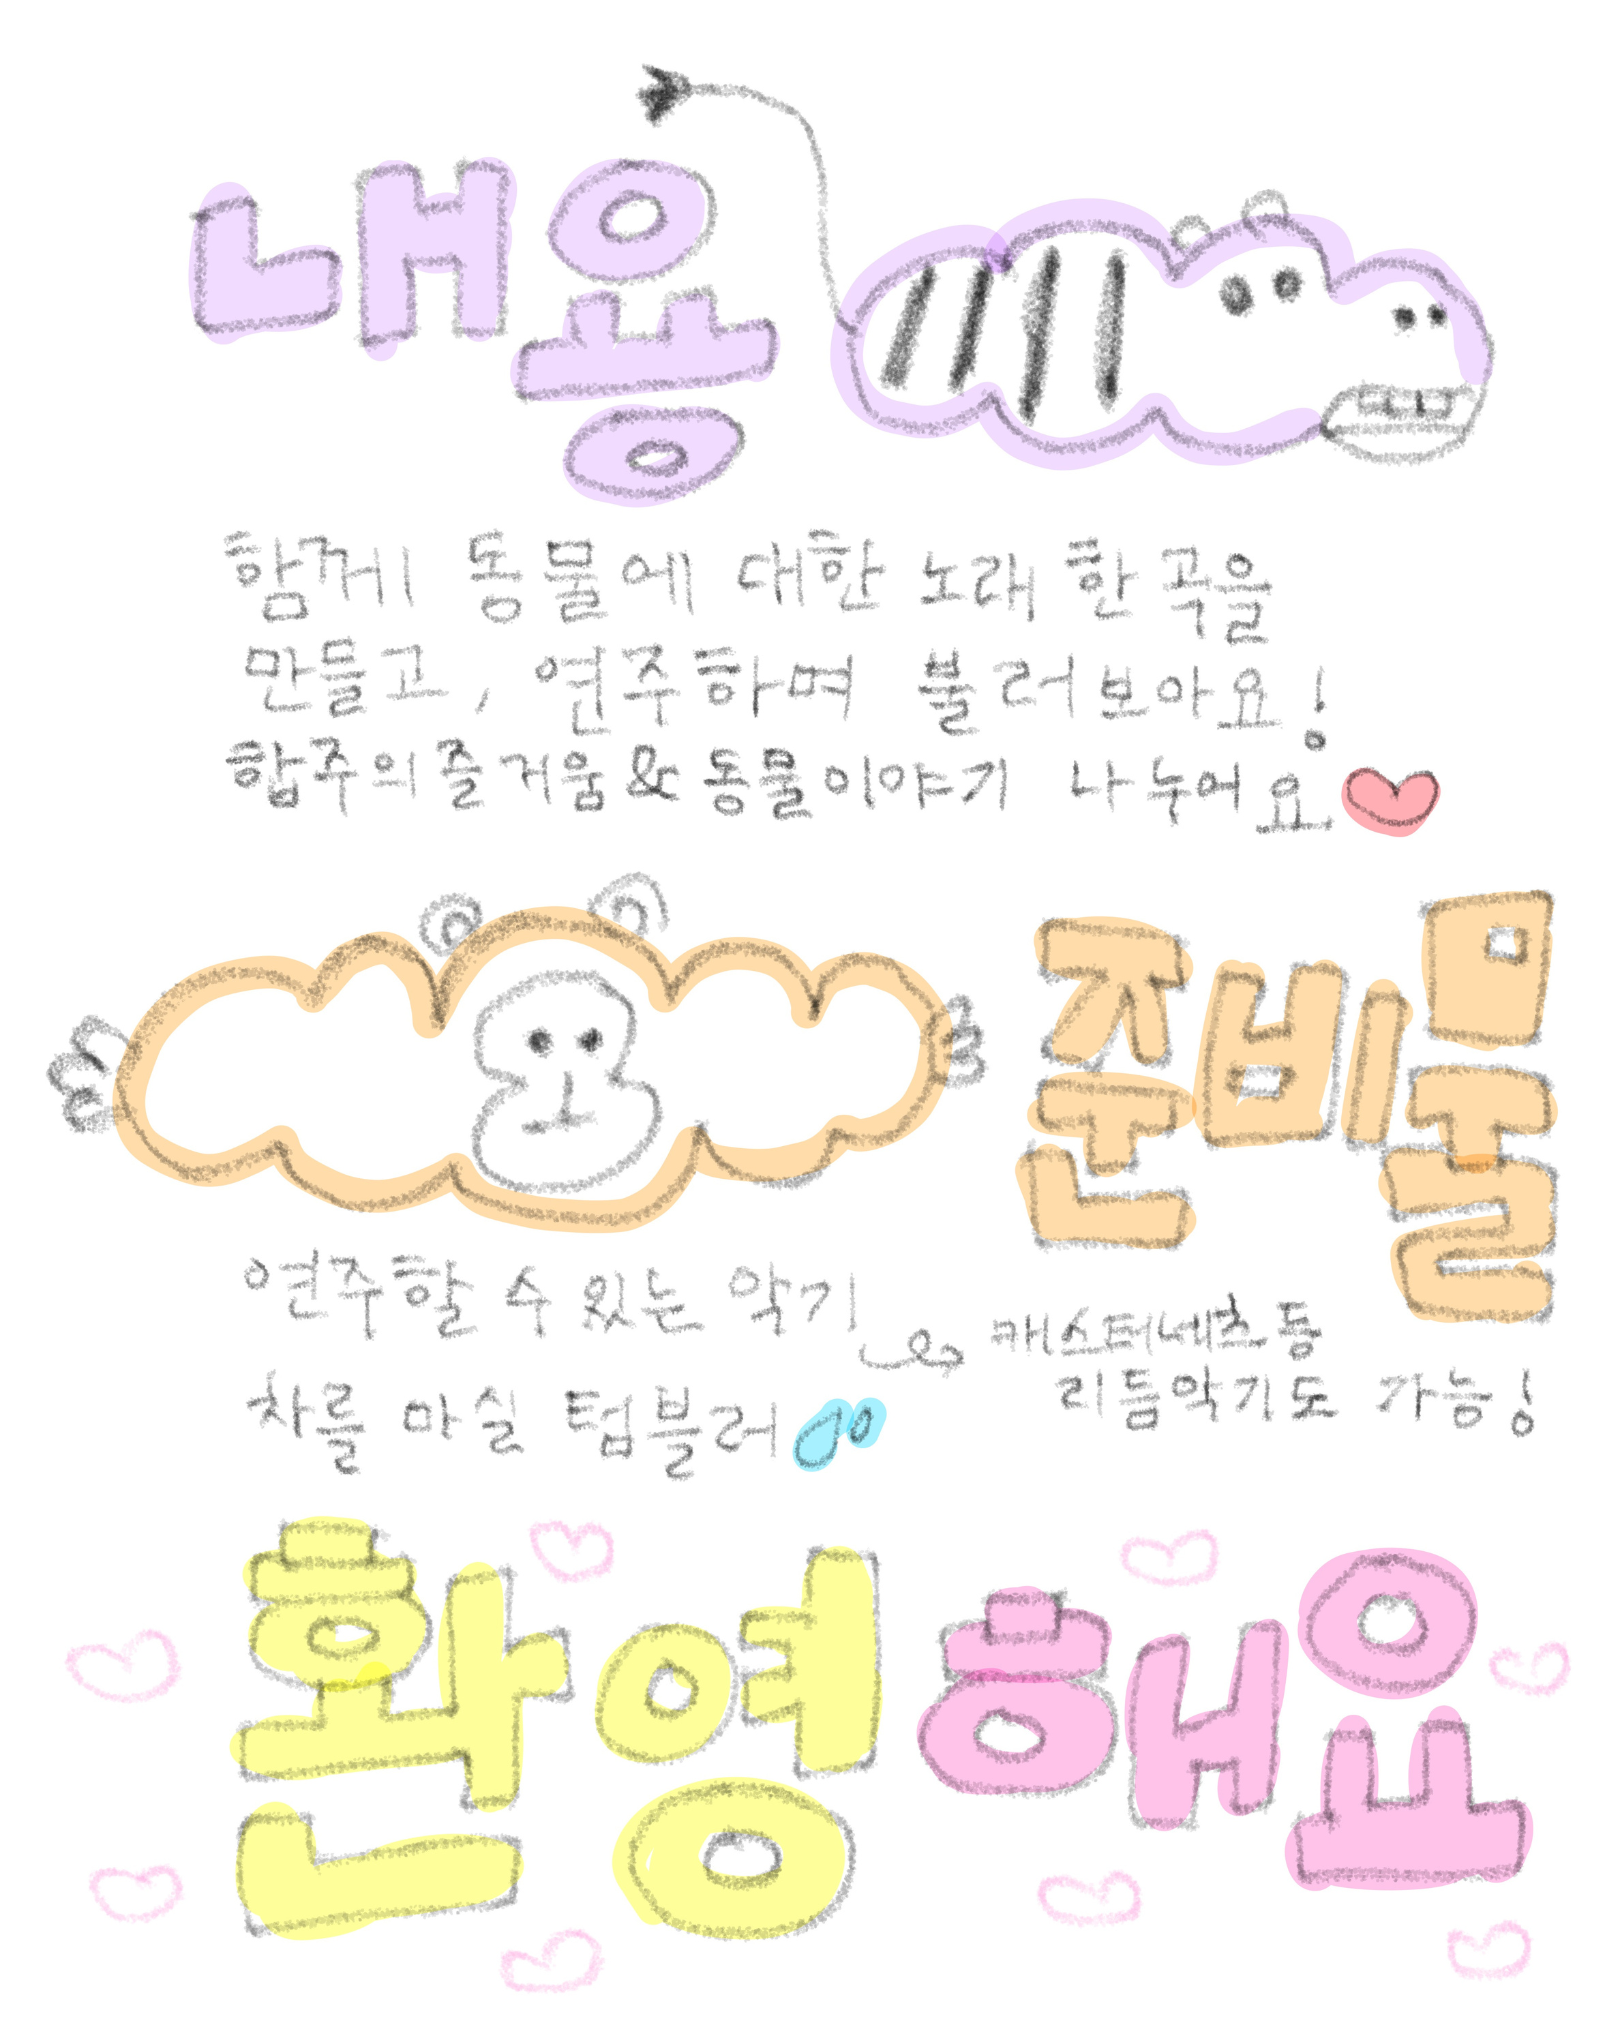 내용
함께 동물에 대한 노래 한 곡을
만들고, 연주하며 불러보아요!
합주의 즐거움 & 동물이야기 나누어요
준비물
연주할 수 있는 악기
캐스터네츠 등
리듬악기도 가능!
차를 마실 텀블러
환영해요